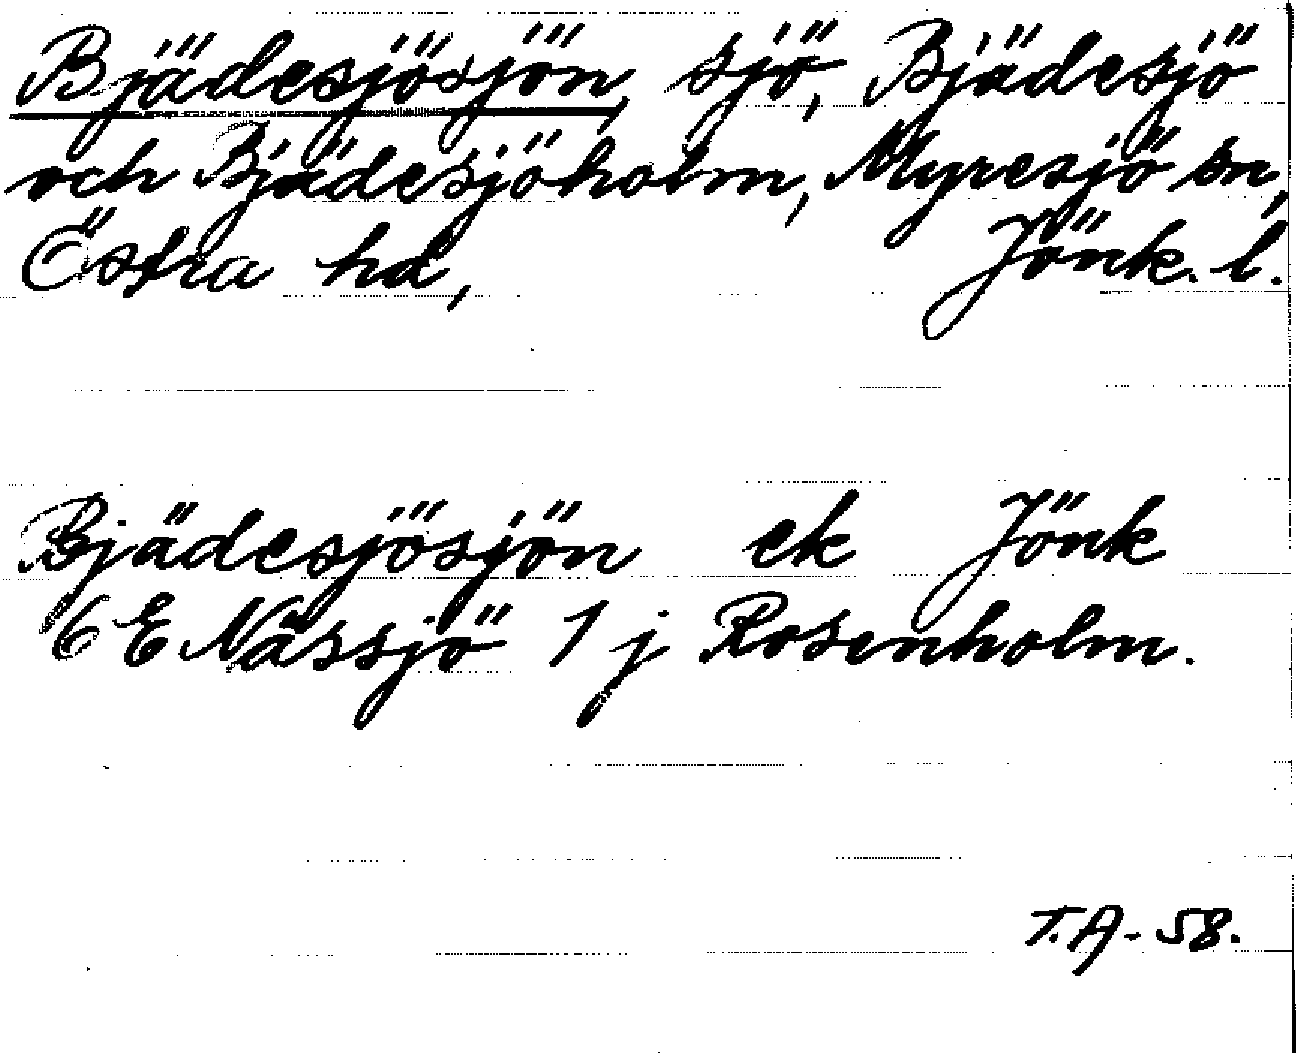 Bjädesjösjön, sjö, Bjädesjö
och Bjädesjöholm, Myresjö sn,
Östra hd, Jönk. l.
Bjädesjösjön ek Jönk
6 E Nässjö 1 j Rosenholm.
T.A-58.